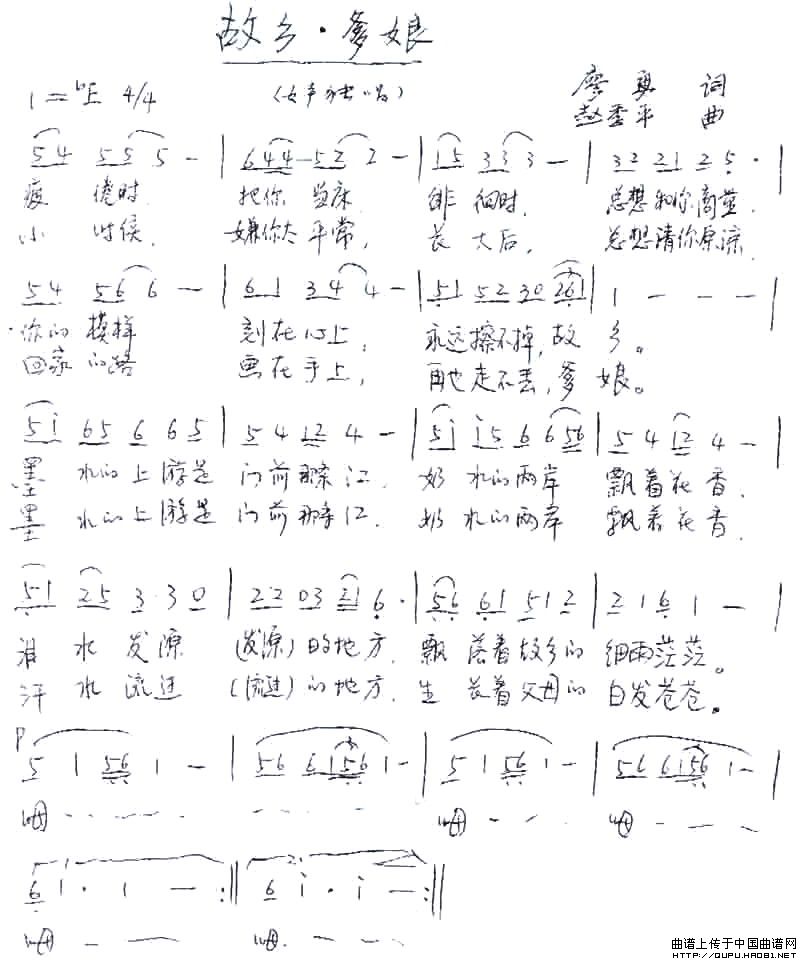 故乡·爹娘
1=♭E 4/4 (女声独唱) 廖勇 词
赵季平 曲
54 55 5 - | 644 52 2 - | 15 33 3 - | 32 21 2 5 · |
疲倦时 把你当床 徘徊时 总想和你商量
小时候 嫌你太平常, 长大后, 总想请你原谅
54 56 6 - | 61 34 4 - | 51 52 30 261 | 1 - - - |
你的模样 刻在心上, 永远擦不掉,故乡。
回家的路 画在手上, 再也走不丢,爹娘。
51 65 6 65 | 54 12 4 - | 51 15 6 656 | 54 12 4 - |
墨水的上游是门前那条江. 奶水的两岸 飘着花香.
墨水的上游是门前那条江. 奶水的两岸 飘着花香.
51 25 3·30 | 22 03 21 6 · | 56 61 51 2 | 2 1 6 1 - |
泪水发源(发源)的地方. 飘落着故乡的细雨茫茫。
汗水流进(流进)的地方. 生长着父母的白发苍苍。
p
5 1 56 1 - | 56 61561 - | 5 1 56 1 - | 56 6156 1 - |
呣 - - - - - 呣 - - 呣 - - -
1. 2.
6 1 · 1 - :|| 6 i · i - :||
呣 - — 呣. - —
曲谱上传于中国曲谱网
HTTP://QUPU.HAO81.NET